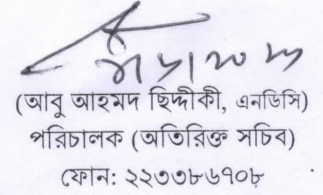 (আবু আহমদ ছিদ্দীকী, এনডিসি)
পরিচালক (অতিরিক্ত সচিব)
ফোন: ২২৩৩৮৬৭০৮